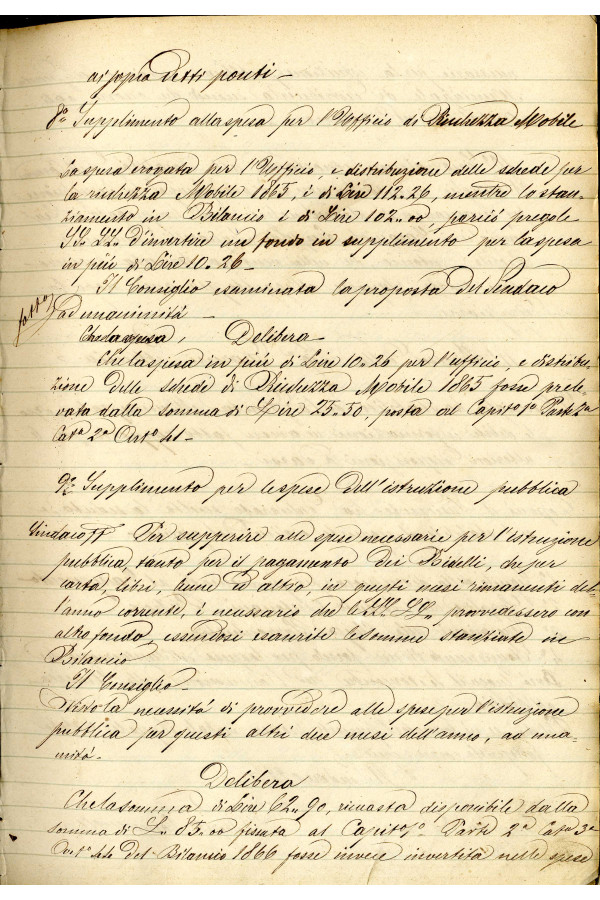 ai sopra detti ponti —
8.° Supplimento alla spesa per l'Ufficio di Ricchezza Mobile
La spesa erogata per l'Ufficio, e distribuzione delle schede per
la ricchezza Mobile 1865, è di Lire 112.26, mentre lo stan-
ziamento in Bilancio è di Lire 102.00, perciò pregole
SS. LL. d'invertire un fondo in supplimento per la spesa
in più di Lire 10.26 —
Il Consiglio esaminata la proposta del Sindaco
fatto
ad unanimità —
Che la spesa, Delibera —
Che la spesa in più di Lire 10.26 per l'ufficio, e distribu-
zione delle schede di Ricchezza Mobile 1865 fosse prele-
vata dalla somma di Lire 25.50, posta al Capito 1° Parte 2a
Cat.a 2a Art.o 41 —
9.° Supplimento per le spese dell'istruzione pubblica
Sindaco ff Per supperire alle spese necessarie per l'istruzione
pubblica, tanto per il pagamento dei Bidelli, che per
carta, libri, lumi ed altro, in questi mesi rimanenti del-
l'anno corrente, è necessario che le SS. LL. provvedessero con
altro fondo, essendosi esaurite le somme stanziate in
Bilancio
Il Consiglio —
Visto la necessità di provvedere alle spese per l'istruzione
pubblica per questi altri due mesi dell'anno, ad una-
nimità —
Delibera
Che la somma di Lire 62.90, rimasta disponibile dalla
somma di L. 85.00 fissata al Capito 1° Parte 2a Cat.a 3a
del Bilancio 1866 fosse invece invertita nelle spese